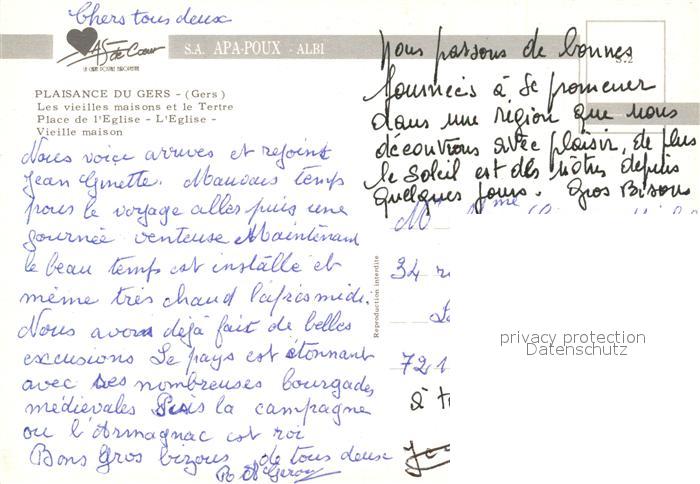 Chers tous deux
As de Cœur
LA CARTE POSTALE EUROPEENNE
S.A. APA-POUX - ALBI
S.2
PLAISANCE DU GERS - (Gers)
Les vieilles maisons et le Tertre
Place de l'Eglise - L'Eglise -
Vieille maison
Nous voici arrives et rejoint
Jean Ginette. Mauvais temps
pour le voyage aller puis une
journée venteuse Maintenant
le beau temps est installé et
même très chaud l'après midi.
Nous avons déjà fait de belles
excusions Le pays est étonnant
avec ses nombreuses bourgades
médiévales Puis la campagne
ou l'Armagnac est roi
Bons Gros bizous de tous deux
Nous passons de bonnes
Journées à se promener
dans une région que nous
découvrons avec plaisir, de plus
le soleil est des nôtres depuis
quelques jours. Gros Bisous
Reproduction interdite
M me
34
721
à
privacy protection
Datenschutz